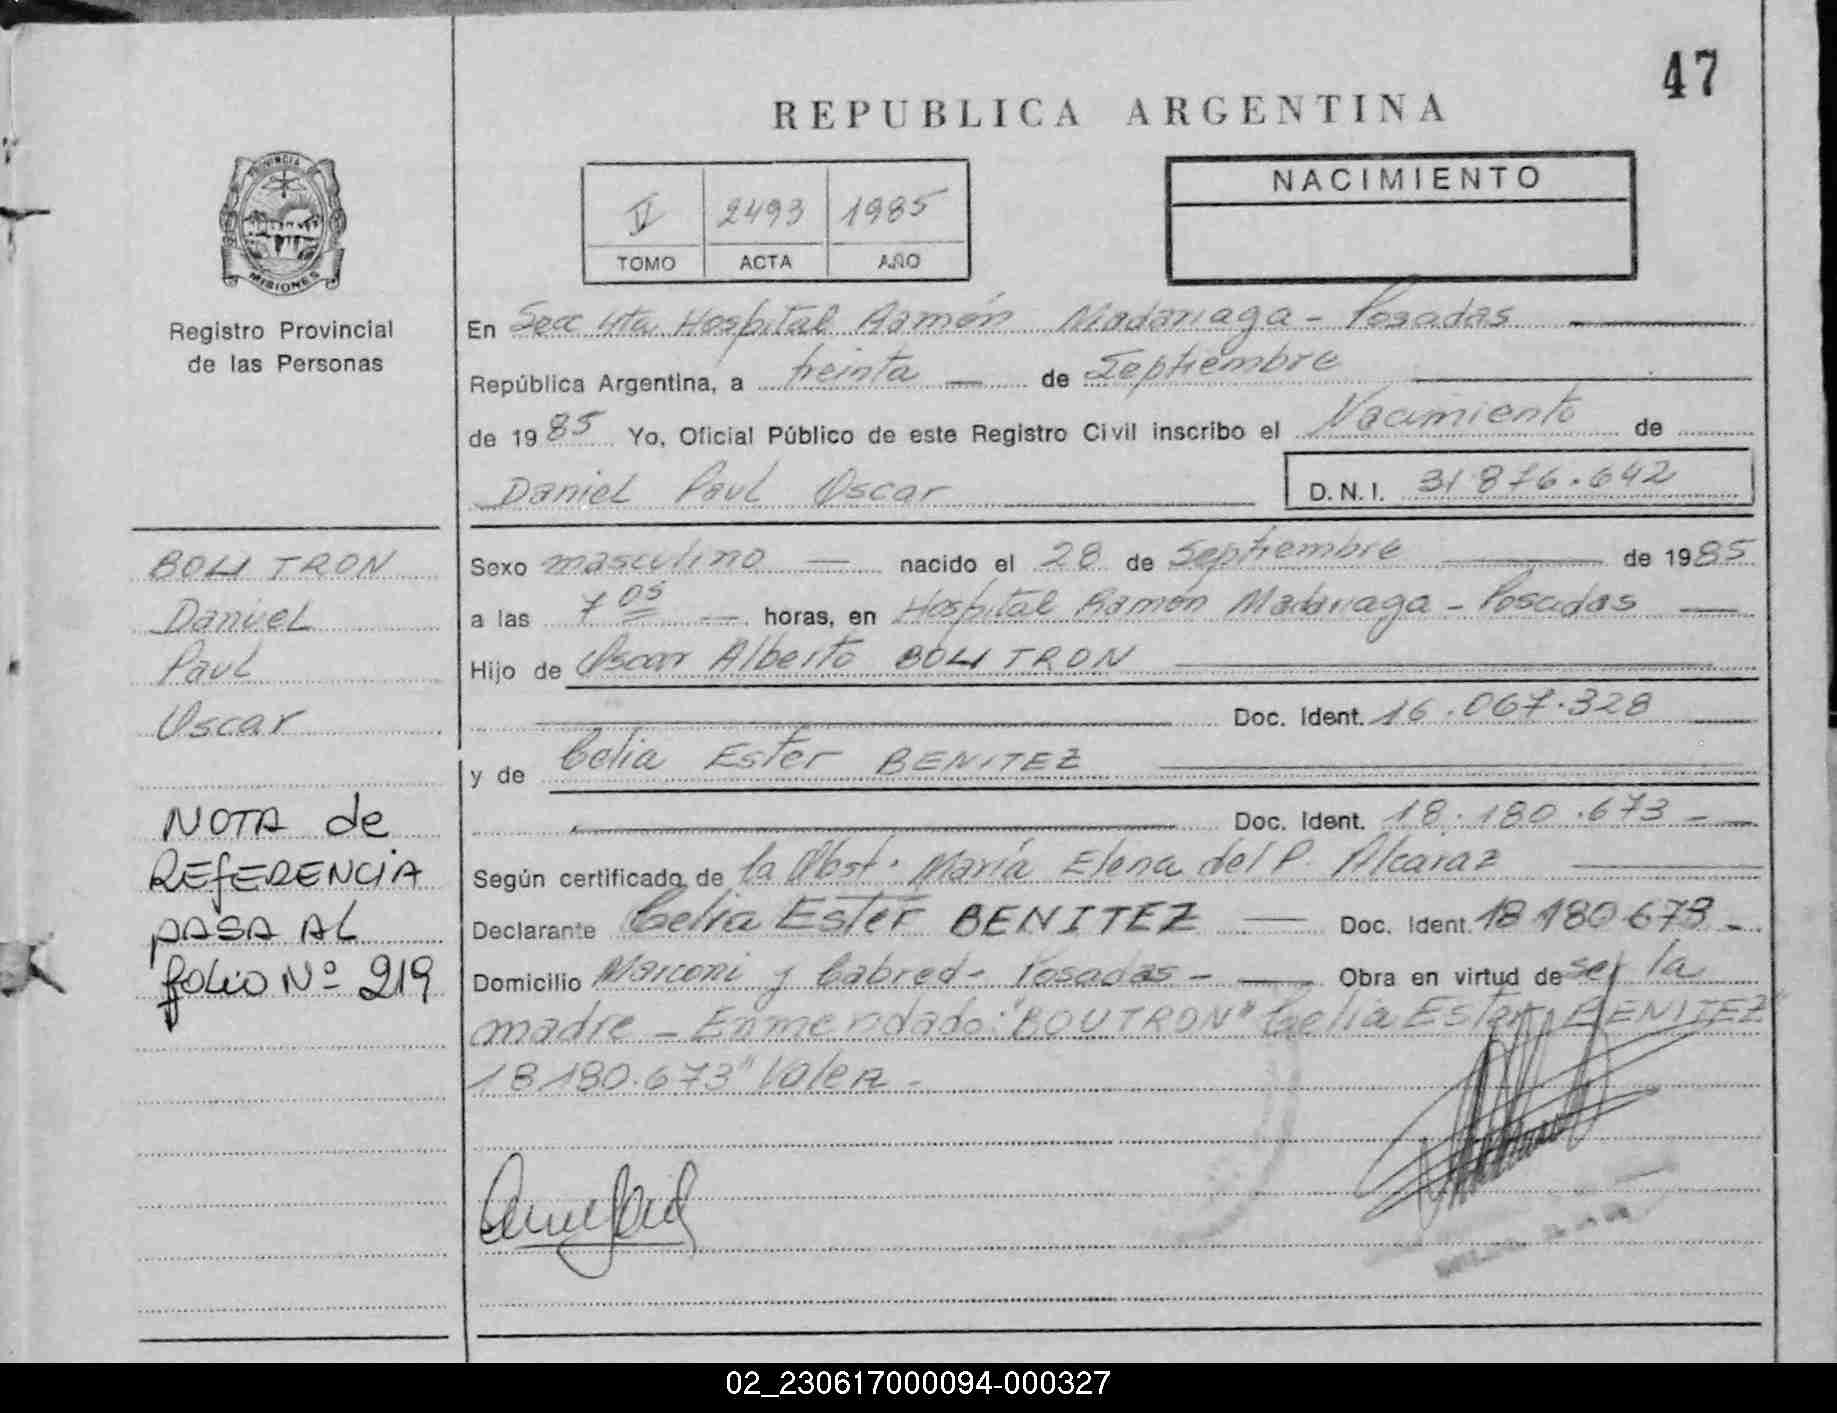 47
REPUBLICA ARGENTINA
PROVINCIA DE
MISIONES
Registro Provincial
de las Personas
V 2493 1985
TOMO ACTA AÑO
NACIMIENTO
En Secc 4ta Hospital Ramón Madariaga - Posadas
República Argentina, a treinta de Septiembre
de 1985 Yo, Oficial Público de este Registro Civil inscribo el Nacimiento de
Daniel Paul Oscar D.N.I. 31.876.642
BOUTRON
Daniel
Paul
Oscar
NOTA de
REFERENCIA
PASA AL
folio Nº 219
Sexo masculino nacido el 28 de Septiembre de 1985
a las 7 05 horas, en Hospital Ramón Madariaga - Posadas
Hijo de Oscar Alberto BOUTRON
Doc. Ident. 16.067.328
y de Celia Ester BENITEZ
Doc. Ident. 18.180.673
Según certificado de la Obst. María Elena del P. Alcaraz
Declarante Celia Ester BENITEZ Doc. Ident. 18180.673
Domicilio Marconi y Cabred - Posadas - Obra en virtud de ser la
madre - Enmendado: "BOUTRON" Celia Ester BENITEZ
18180.673" Valen -
02_230617000094-000327